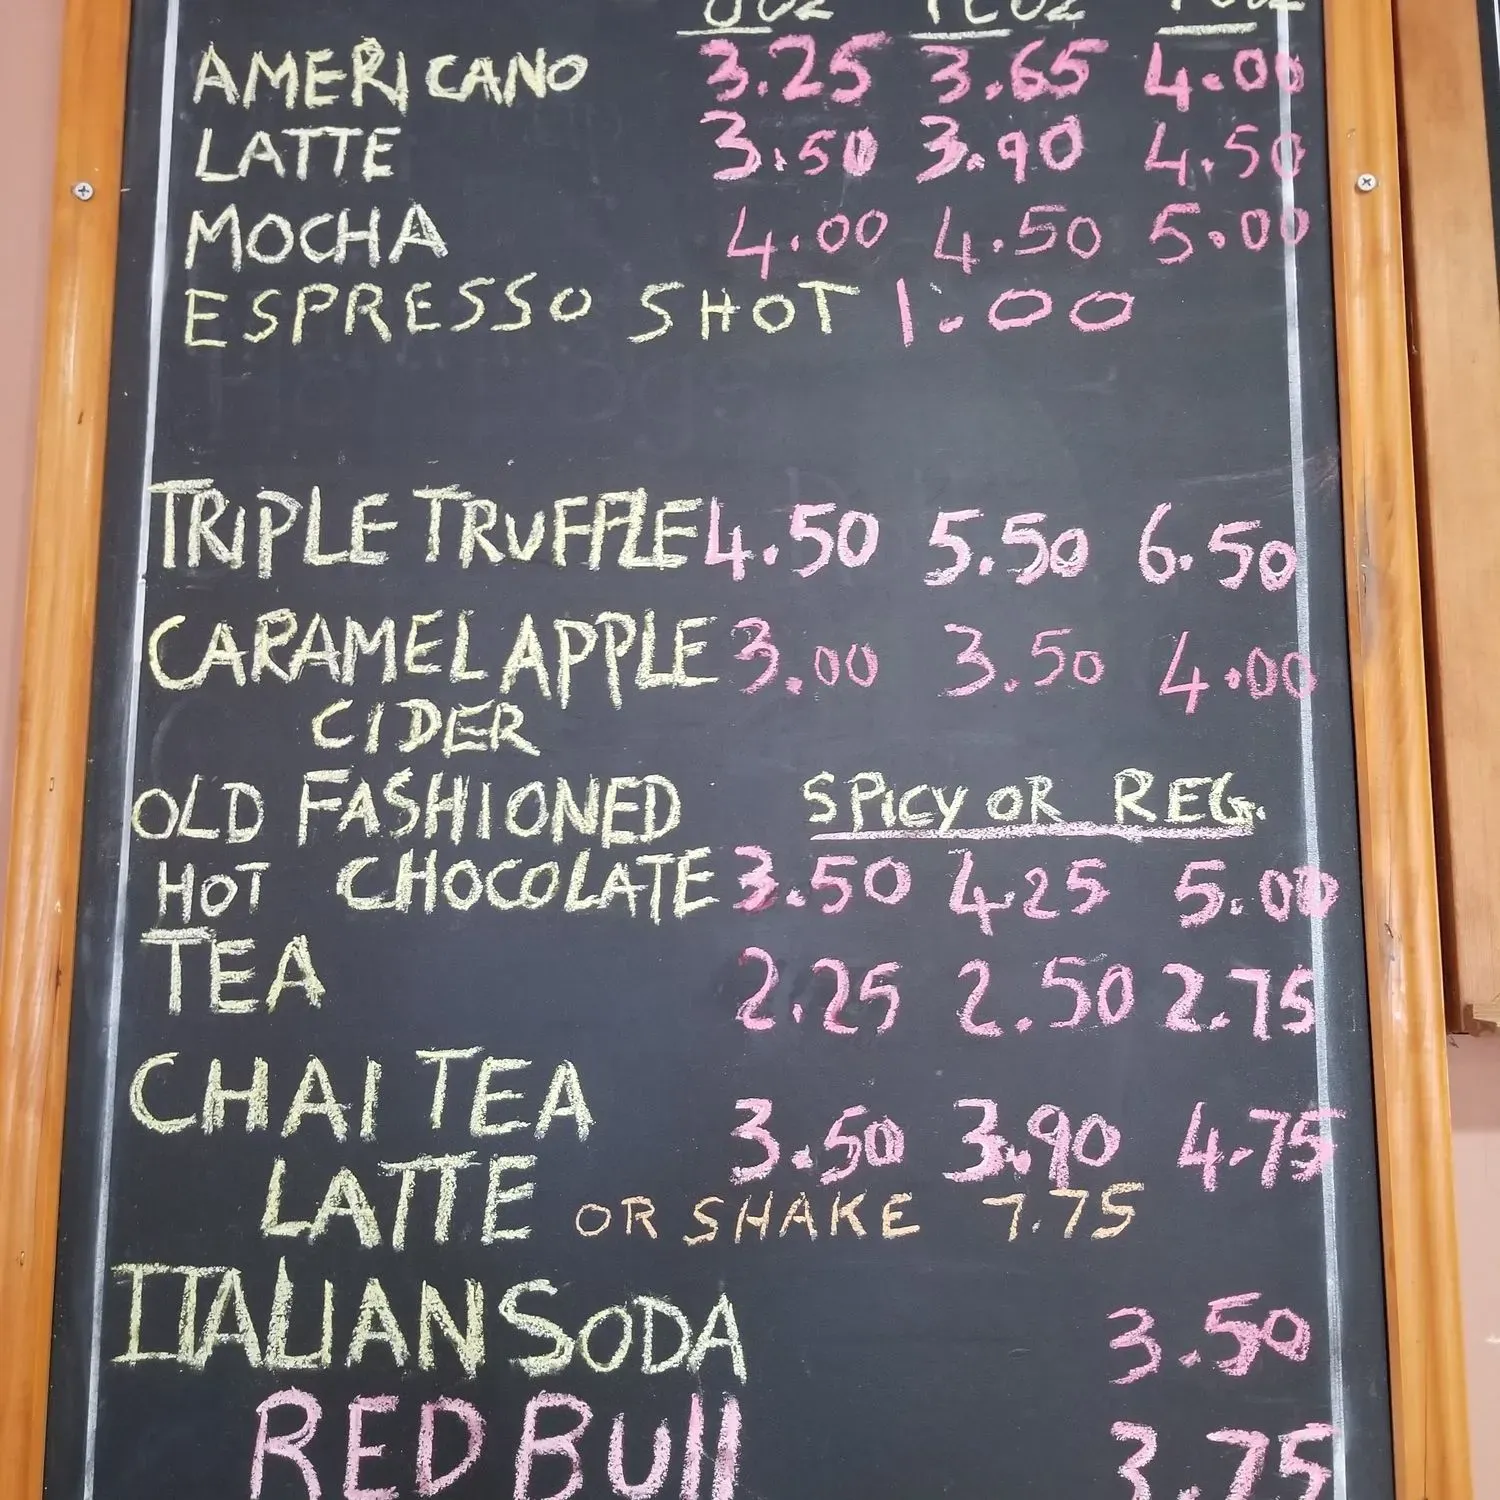 AMERICANO 3.25 3.65 4.00
LATTE 3.50 3.90 4.50
MOCHA 4.00 4.50 5.00
ESPRESSO SHOT 1.00
TRIPLE TRUFFLE 4.50 5.50 6.50
CARAMEL APPLE 3.00 3.50 4.00
CIDER
OLD FASHIONED SPICY OR REG.
HOT CHOCOLATE 3.50 4.25 5.00
TEA 2.25 2.50 2.75
CHAI TEA 3.50 3.90 4.75
LATTE OR SHAKE 7.75
ITALIAN SODA 3.50
RED BUll 3.75